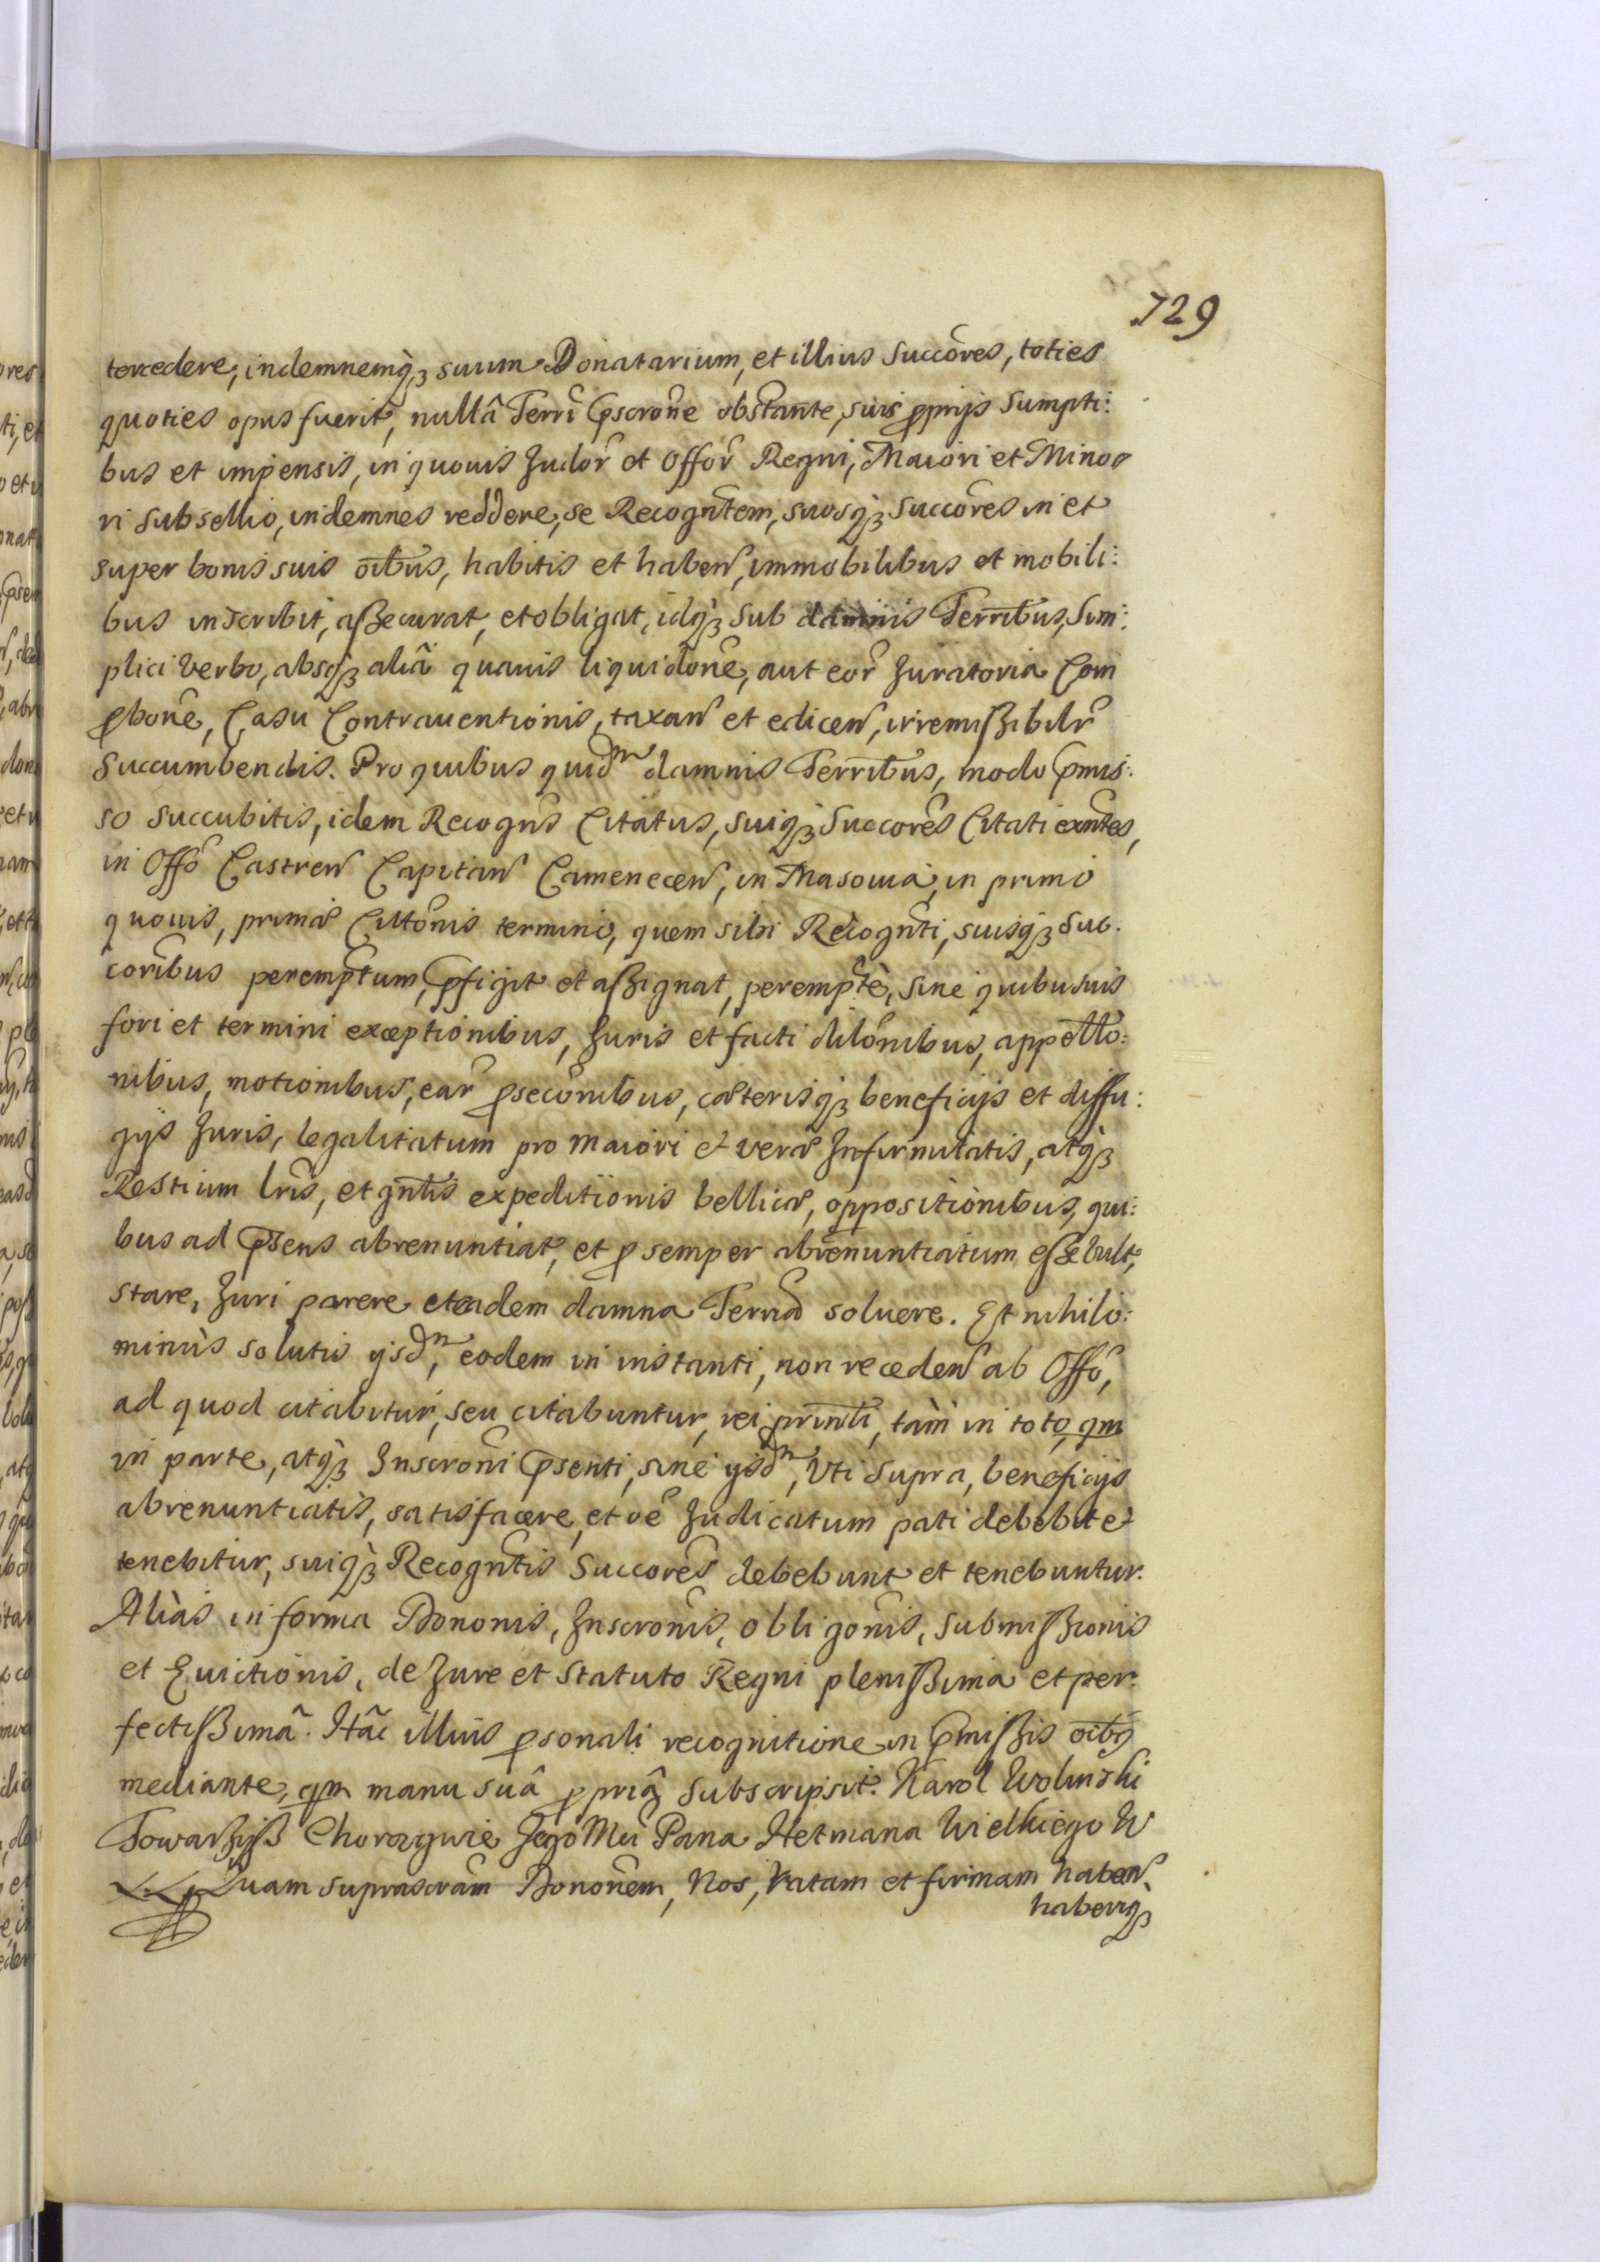 729
tercedere, indemnemq̀ꝫ suum Donatarium, et illius Succôres, toties
quoties opus fuerit, nullâ Terrī Pscrōne obstante, suis pprijs Sumpti:
bus et impensis, in quouis Judōr et Offōr Regni, Maiori et Mino
ri Subsellio, indemnes reddere, se Recogn̄tem, suosq̀ꝫ Succōres in et
super bonis suis oı̄bus, habitis et haben, immobilibus et mobili:
bus inscribit, assecurat, et obligat, idq̀ꝫ Sub damnis Terrı̄bus, Sim:
plici Verbo, absq̀ꝫ aliâ quauis liquidōne, aut eor Juratoria Com
pbōne, Casu Contrauentionis, taxan et edicen, irremissibilr
Succumbendis. Pro quibus quidm damnis Terrı̄bus, modo pmis:
so succubitis, idem Recogn̄s Citatus, suiq̀ꝫ Succorēs Citati exn̄tes,
in Offō Castren Capitan Camenecen, in Masouiâ, in primo
quouis, primæ Citt̄onis termino, quem sibi Recogn̄ti, suisq̀ꝫ Suc:
corı̄bus peremptum, pfigit et assignat, perempt̄è, sine quibusuis
fori et termini exceptionibus, Juris et facti dilōnibus, appell̄o:
nibus, motionibus, ear psecōnibus, cæterisq̀ꝫ beneficijs et diffu:
gijs Juris, legalitatum pro maiori et veræ Infirmitatis, atq̀ꝫ
Restium lris, et gn̄lis expeditionis bellicæ, oppositionibus, qui:
bus ad psens abrenuntiat, et p semper abrenuntiatum esse vult,
stare, Juri parere et eadem damna Terrı̄a soluere. Et nihilo:
minùs solutis ysdm, eodem in instanti, non receden ab Offō,
ad quod citabitur, seu citabuntur, rei prin̄li, tàm in toto, qm
in parte, atq̀ꝫ Inscrōni psenti, sine ysdm, Vti Supra, beneficijs
abrenuntiatis, satisfacere, et oē Judicatum pati debebit et
tenebitur, suiq̀ꝫ Recogn̄tis Succorēs debebunt et tenebuntur.
Aliàs in forma Donōnis, Inscrōnis, obligōnis, Submissionis
et Euictionis, de Jure et Statuto Regni plenissima et per:
fectissimâ. Hâc illius psonali recognitione in pmissis oı̄bꝫ
mediante, qm manu suâ ppriâ Subscripsit. Karol Wolinski
Towarzysz Chorągwie Jego Mci Pana Hetmana Wielkiego W
X. L. Quam suprascrām Donōnem, Nos, ratam et firmam haben
haberiq̀ꝫ